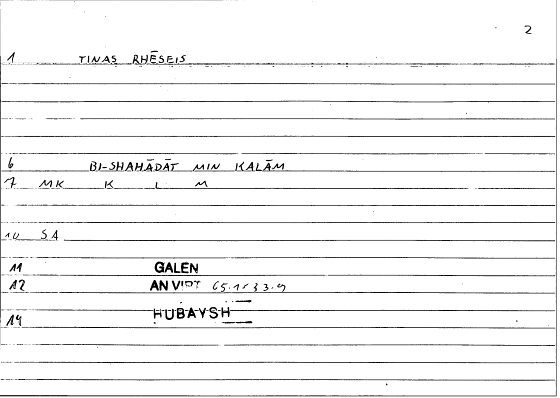 2
1 TINAS RHĒSEIS
6 BI-SHAHĀDĀT MIN KALĀM
7 MK K L M
10 SA
11 GALEN
12 AN VIRT
14 HUBAYSH